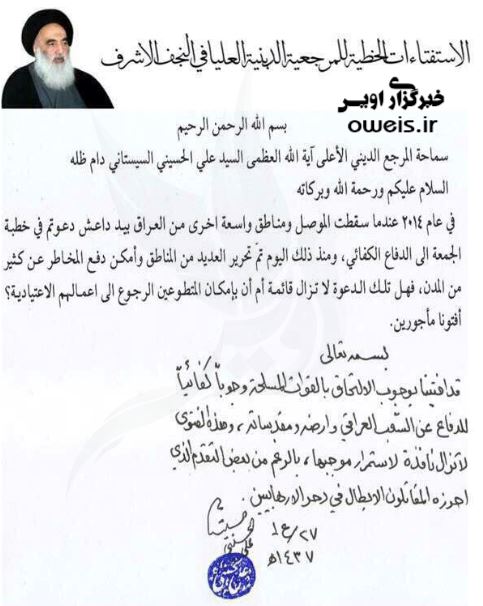 الاستفتاءات الخطية للمرجعية الدينية العليا في النجف الاشرف
خبرگزاری اویس
oweis.ir
بسم الله الرحمن الرحيم
سماحة المرجع الديني الأعلى آية الله العظمى السيد علي الحسيني السيستاني دام ظله
السلام عليكم ورحمة الله وبركاته
في عام ٢٠١٤ عندما سقطت الموصل ومناطق واسعة اخرى من العراق بيد داعش دعوتم في خطبة
الجمعة الى الدفاع الكفائي، ومنذ ذلك اليوم تمّ تحرير العديد من المناطق وأمكن دفع المخاطر عن كثير
من المدن، فهل تلك الدعوة لا تزال قائمة أم أن بإمكان المتطوعين الرجوع الى اعمالهم الاعتيادية؟
أفتونا مأجورين.
بسمه تعالى
قد افتينا بوجوب الالتحاق بالقوات المسلحة وجوباً كفائياً
للدفاع عن الشعب العراقي وارضه ومقدساته، وهذه الفتوى
لا تزال نافذة لاستمرار موجبها، بالرغم من بعض التقدم الذي
احرزه المقاتلون الابطال في دحر الارهابيين.
٢٧/ع١
١٤٣٧هـ